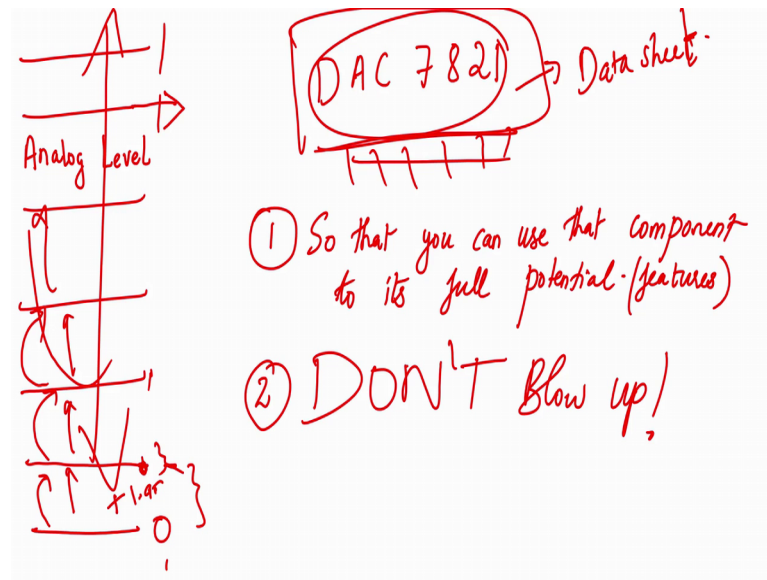 1
Analog Level
0
DAC 7821
Data sheet.
1 So that you can use that component
to its full potential. (features)
2 DON'T Blow up!